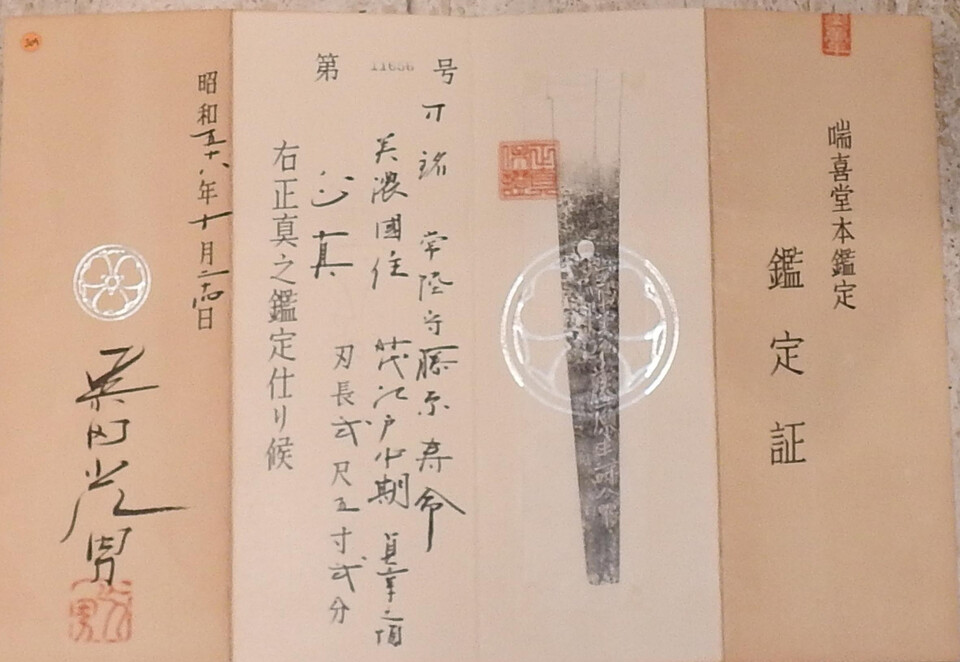 喘喜堂本鑑定
鑑定証
正真
保證
第 11656 号
刀 銘 常陸守藤原寿命
美濃國住 江戸中期 貞享之頃
正真 刃長弐尺五寸弐分
右正真之鑑定仕り候
昭和五十八年十月二十四日
光男